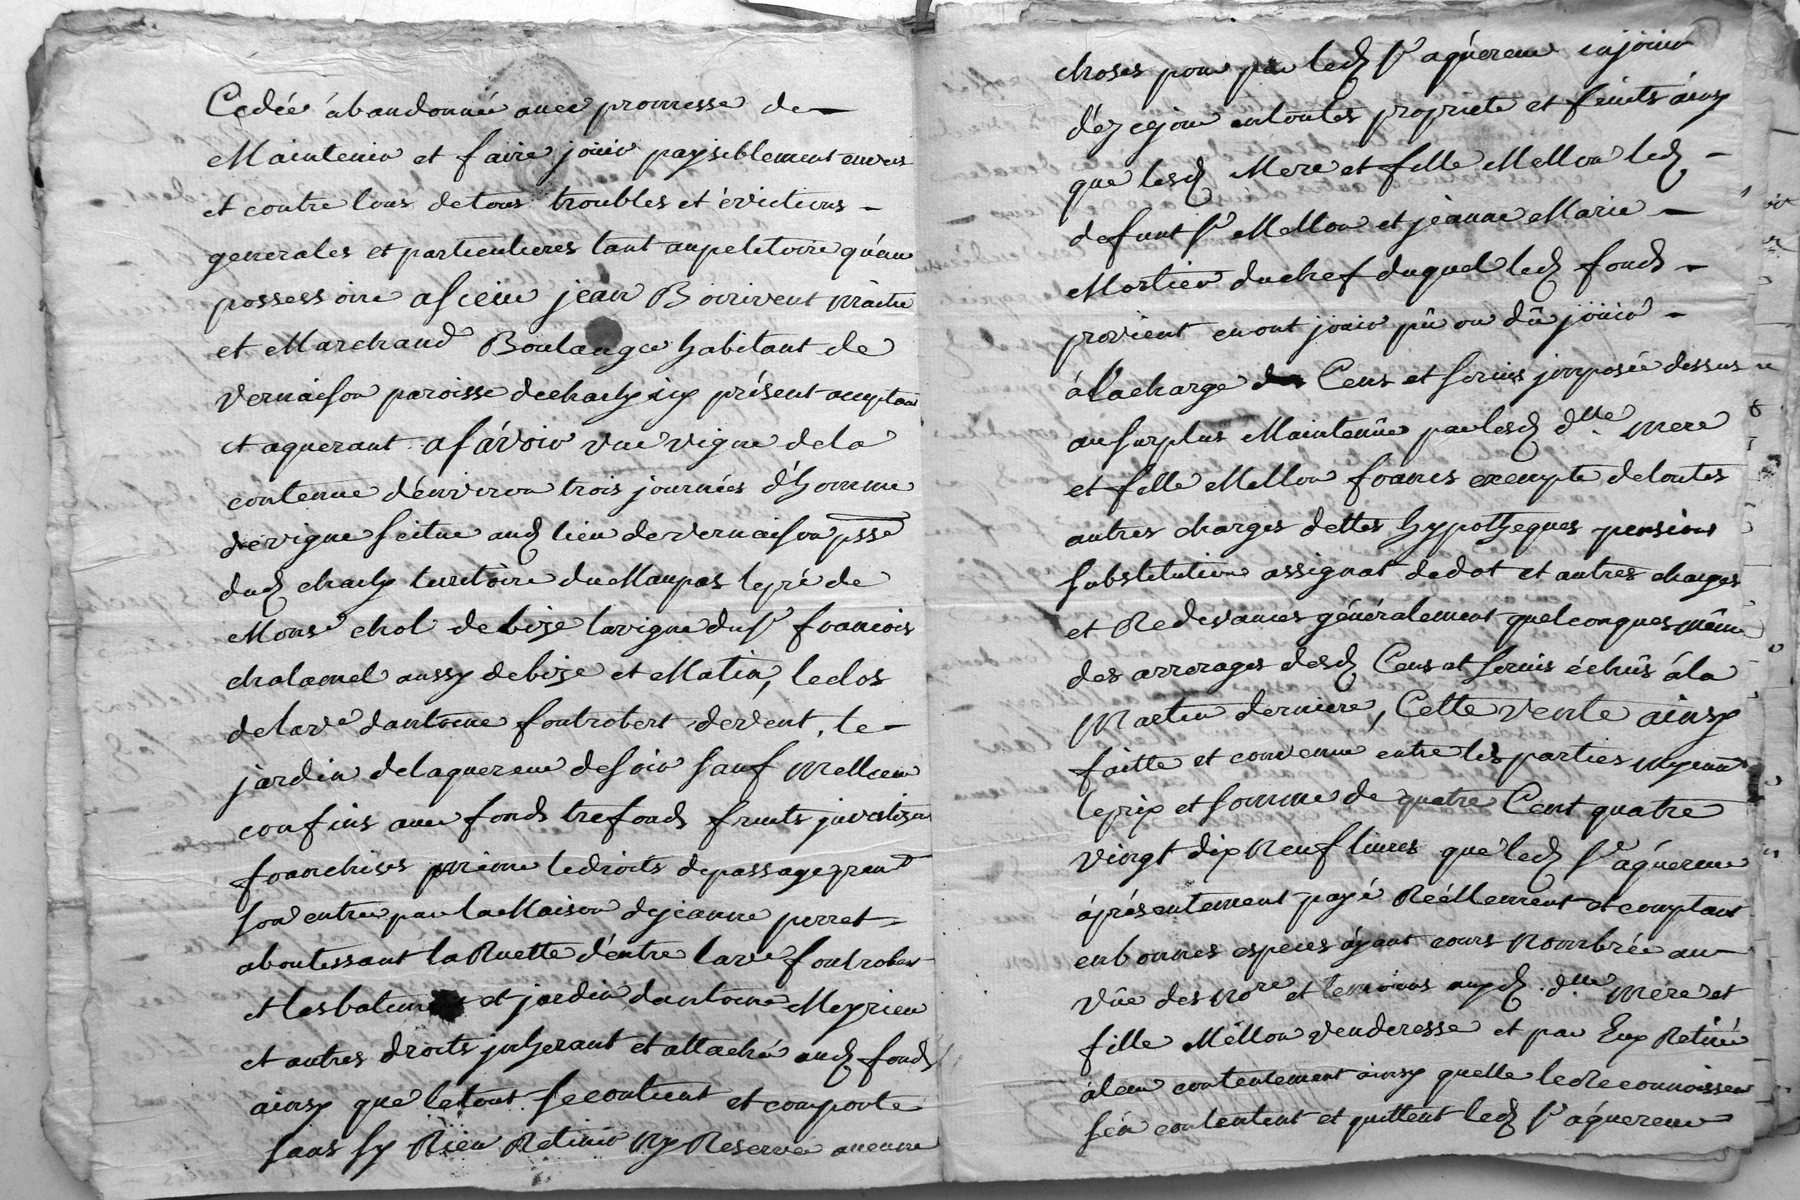 Cedée abandonnée avec promesse de
Maintenir et faire jouir paysiblement envers
et contre tous de tous troubles et évictions
generales et particulieres tant au petitoire qu'au
possessoire a sieur jean Boirivent maitre
et Marchand Boulanger habitant de
vernaison paroisse de charly icy présent acceptant
et aquerant asávoir une vigne de la
contenue d'énviron trois journées d'homme
de vigne scitue aud lieu de vernaison psse
dud charly territoire du Maupas le pré de
Monsr chol de bize la vigne du sr francois
chalamel aussy de bize et Matin, le clos
de la ve d'antoine foutrobert de vent, le
jardin de laquereur de soir sauf meilleur
confins avec fonds trefonds fruits
franchises même le droits de passage prenant
son entrée par la Maison de jeanne perret
aboutissant la Ruette d'éntre la ve foutrobert
et les et jardin d'antoine Meyrieu
et autres droits jnherant et attaché aud fonds
ainsy que le tout se contient et comporte
sans sy Rien Retenir Ny Reserver aucune
choses pour par led sr aquéreur en jouir
déz ce jour en toutes proprieté et fruits áinsy
que lesd Mere et fille Mellon led
defunt sr Mellon et jeanne Marie
Mortier du chef duquel led fonds
provient en ont jouir pû ou dû jouir
á la charge Cens et servis jmposée dessus
au surplus Maintenüe par lesd dlle mere
et fille Mellon francs exempte de toutes
autres charges dettes hypotheques pensions
substitution assignat de dot et autres charges
et Redevances généralement quelconques même
des arrerages desd Cens et servis échûs á la
Martin derniere, Cette vente ainsy
faitte et convenue entre les parties moyenant
le prix et somme de quatre Cent quatre
vingt dix neuf livres que led sr aquéreur
áprésentement payé Réellement et comptant
en bonnes especes áyant cours Nombrée au
vûe des Nore et temoins auxd dlle mere et
fille Méllon venderesse et par Eux Retiré
á leur contentement ainsy quelle le Reconnoissent
s'én contentent et quittent led sr aquereur